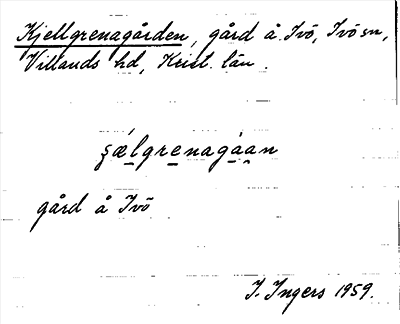 Kjellgrenagården, gård å Ivö, Ivö sn,
Villands hd, Krist. län.
ʂǽl̠gre̠nagå̀a̠n
gård å Ivö
I. Ingers 1959.